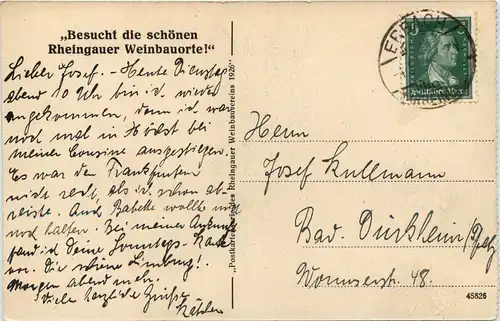 „Besucht die schönen
Rheingauer Weinbauorte!"
Lieber Josef. – Heute Dienstag
abend 10 Uhr bin ich wieder
angekommen, denn ich war
noch mal in Höchst bei
meiner Cousine ausgestiegen.
Es war den Frankfurten
nicht recht, als ich schon ab-
reiste. Auch Babette wollte mich
noch halten. Bei meiner Ankunft
fand ich Deine Sonntags-Karte
vor. Die schöne Limburg!
Morgen abend mehr.
Viele herzliche Grüße
Käthe
„Postkarte des Rheingauer Weinbauvereins 1926"
ERBACH
Deutsches Reich
Herrn
Josef Kullmann
Bad. Dürkheim/Pfalz
Wormserstr. 48.
45826